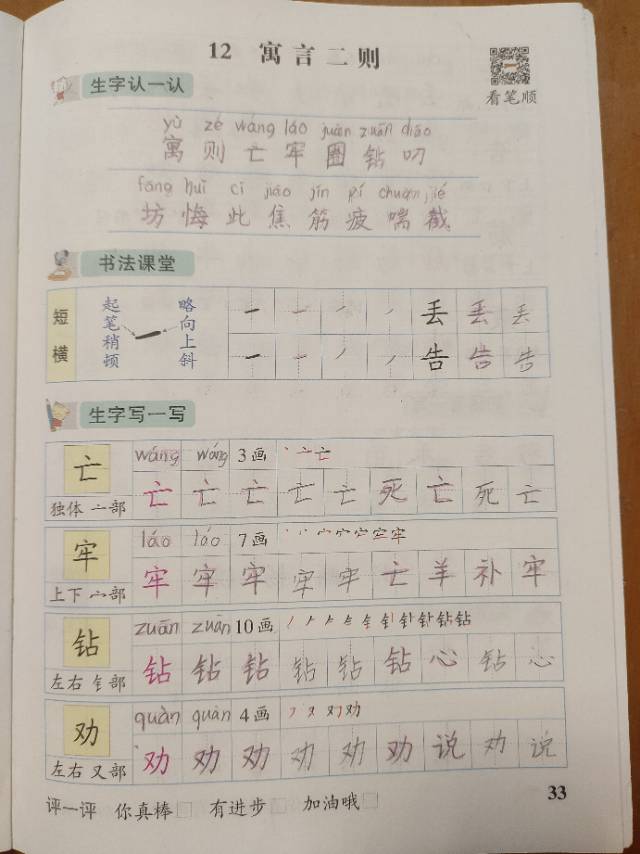 12 寓言二则
看笔顺
生字认一认
yù zé wáng láo juàn zuān dāo
寓 则 亡 牢 圈 钻 叨
fāng huǐ cǐ jiāo jīn pí chuǎn jié
坊 悔 此 焦 筋 疲 喘 截
书法课堂
短横 起笔稍顿 略向上斜
一 一 丿 丿 丢 丢 丢
一 一 丿 丿 告 告 告
生字写一写
亡 wáng wáng 3画 丶 亠 亡
独体 亠部 亡 亡 亡 亡 亡 死 亡 死 亡
牢 láo láo 7画
上下 宀部 牢 牢 牢 牢 牢 亡 羊 补 牢
钻 zuān zuān 10画
左右 钅部 钻 钻 钻 钻 钻 钻 心 钻 心
劝 quàn quàn 4画
左右 又部 劝 劝 劝 劝 劝 劝 说 劝 说
评一评 你真棒 有进步 加油哦
33